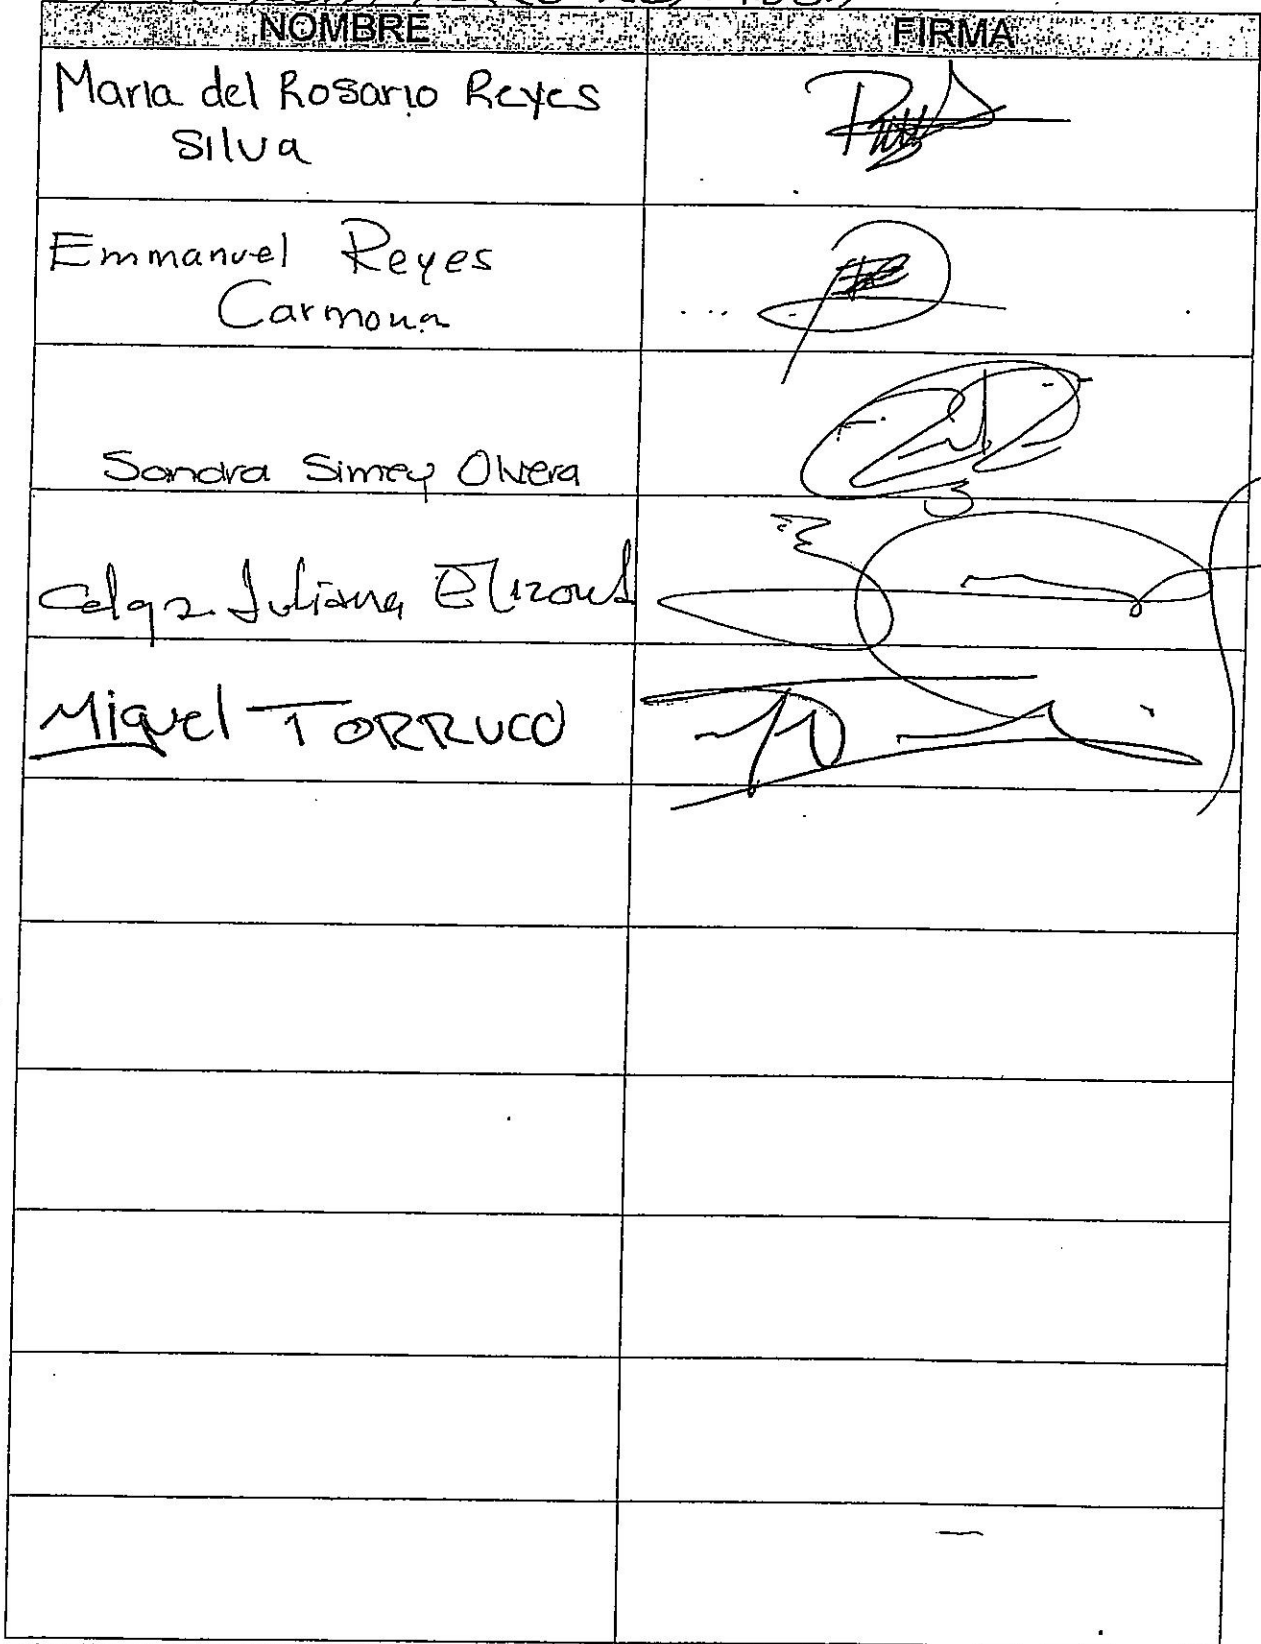 NOMBRE FIRMA
Maria del Rosario Reyes
Silva
Emmanuel Reyes
Carmona
Sandra Simey Olvera
Juliana
Miguel TORRUCO